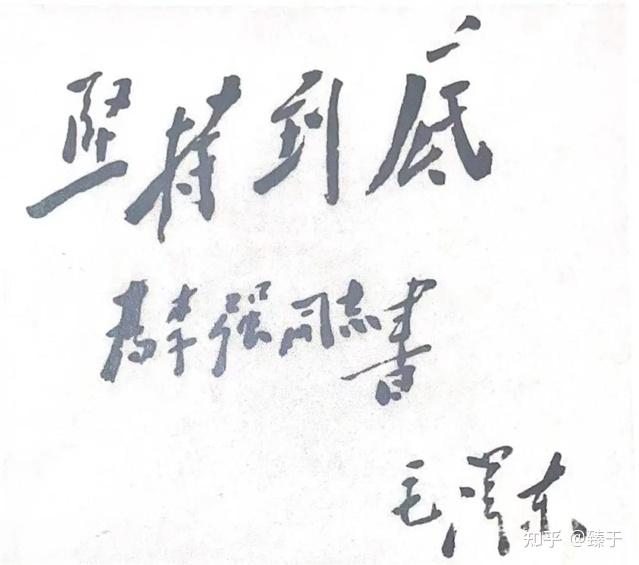 坚持到底
為李强同志書
毛澤东
知乎 @臻于